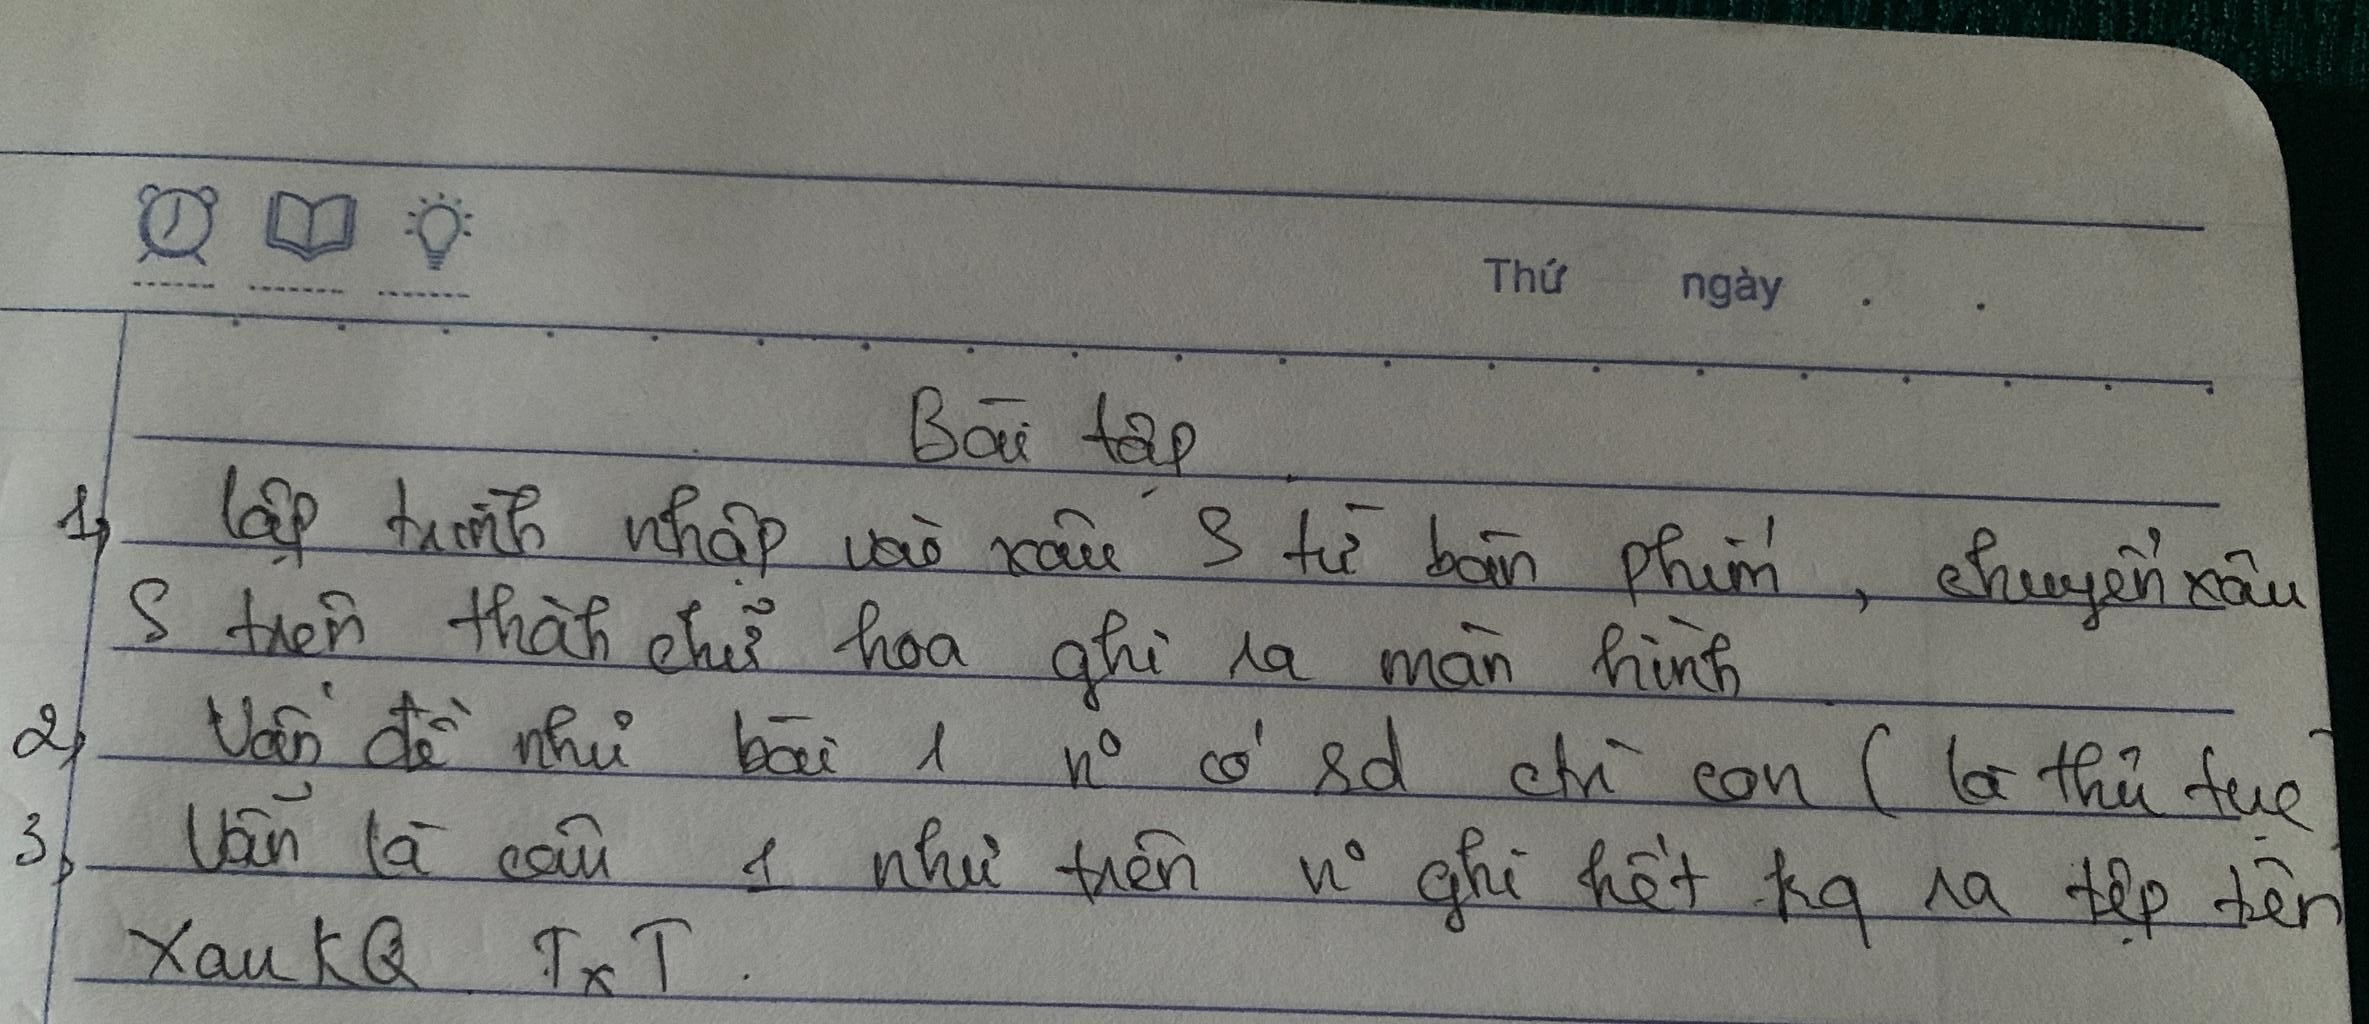 Thứ ngày . .
Bài tập
1, lập trình nhập vào xâu S từ bàn phím, chuyển xâu
S trên thàh chữ hoa ghi ra màn hình
2, Vấn đề như bài 1 nº có sd ctr con ( là thủ tục
3, Vẫn là câu 1 như trên nº ghi hết kq ra tệp tên
XauKQ. TxT.